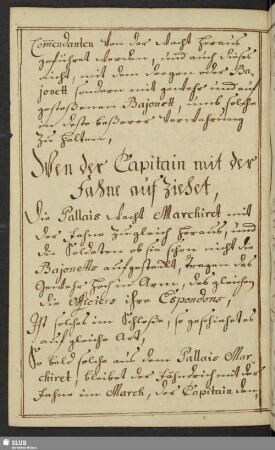 Commendanten von der Wacht heraus
geführet werden, und auch dieses
nicht, mit dem Deegen oder Ba-
jonett sondern mit gewehr und auf
gestoßenen Bajonett, umb solche
in desto beßerer Verwahrung
zu halten,
Wen der Capitain mit der
Fahne auf ziehet,
Die Pallais Wacht Marchiret mit
der Fahne zugleich heraus, und
die Soldaten ob sie schon nicht die
Bajonetts aufgesteckt, tragen das
Gewehr hoch im Arm, des gleichen
die Officiers ihre Espondons,
Ist solches im Schloße, so geschiehet es
auf gleiche Art,
So bald solche aus dem Pallais Mar-
chiret, bleibet der Fähndrich mit der
Fahne im March, der Capitain den,
SLUB